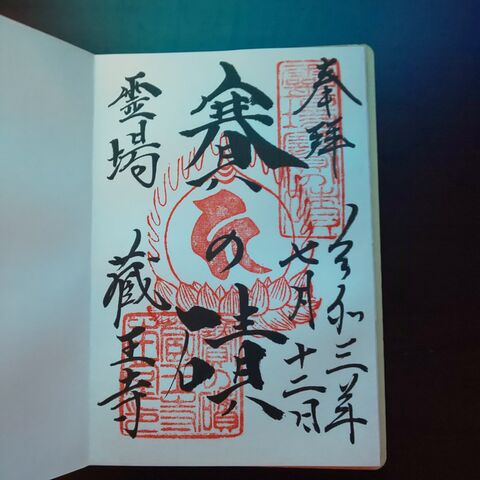 奉拝
令和三年
七月十二日
賽の磧
霊場
蔵王寺